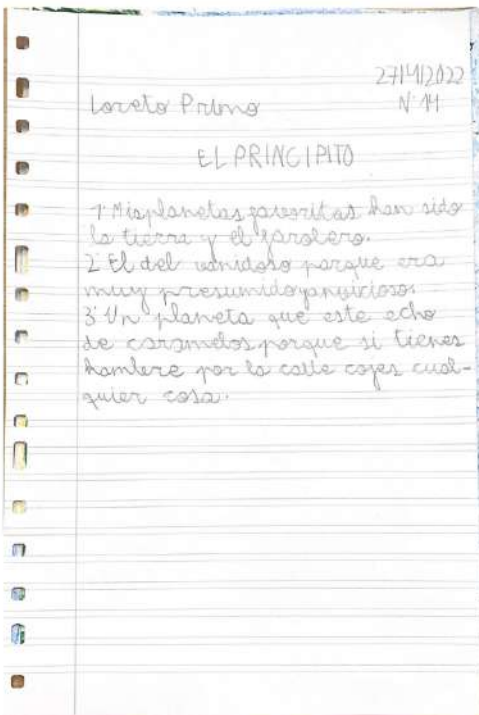 27/4/2022
Loreto Primo Nº 14
EL PRINCIPITO
1º Mis planetas favoritas han sido
la tierra y el farolero.
2º El del vanidoso porque era
muy presumido y
3º Un planeta que este echo
de caramelos porque si tienes
hambre por la calle cojes cual-
quier cosa.